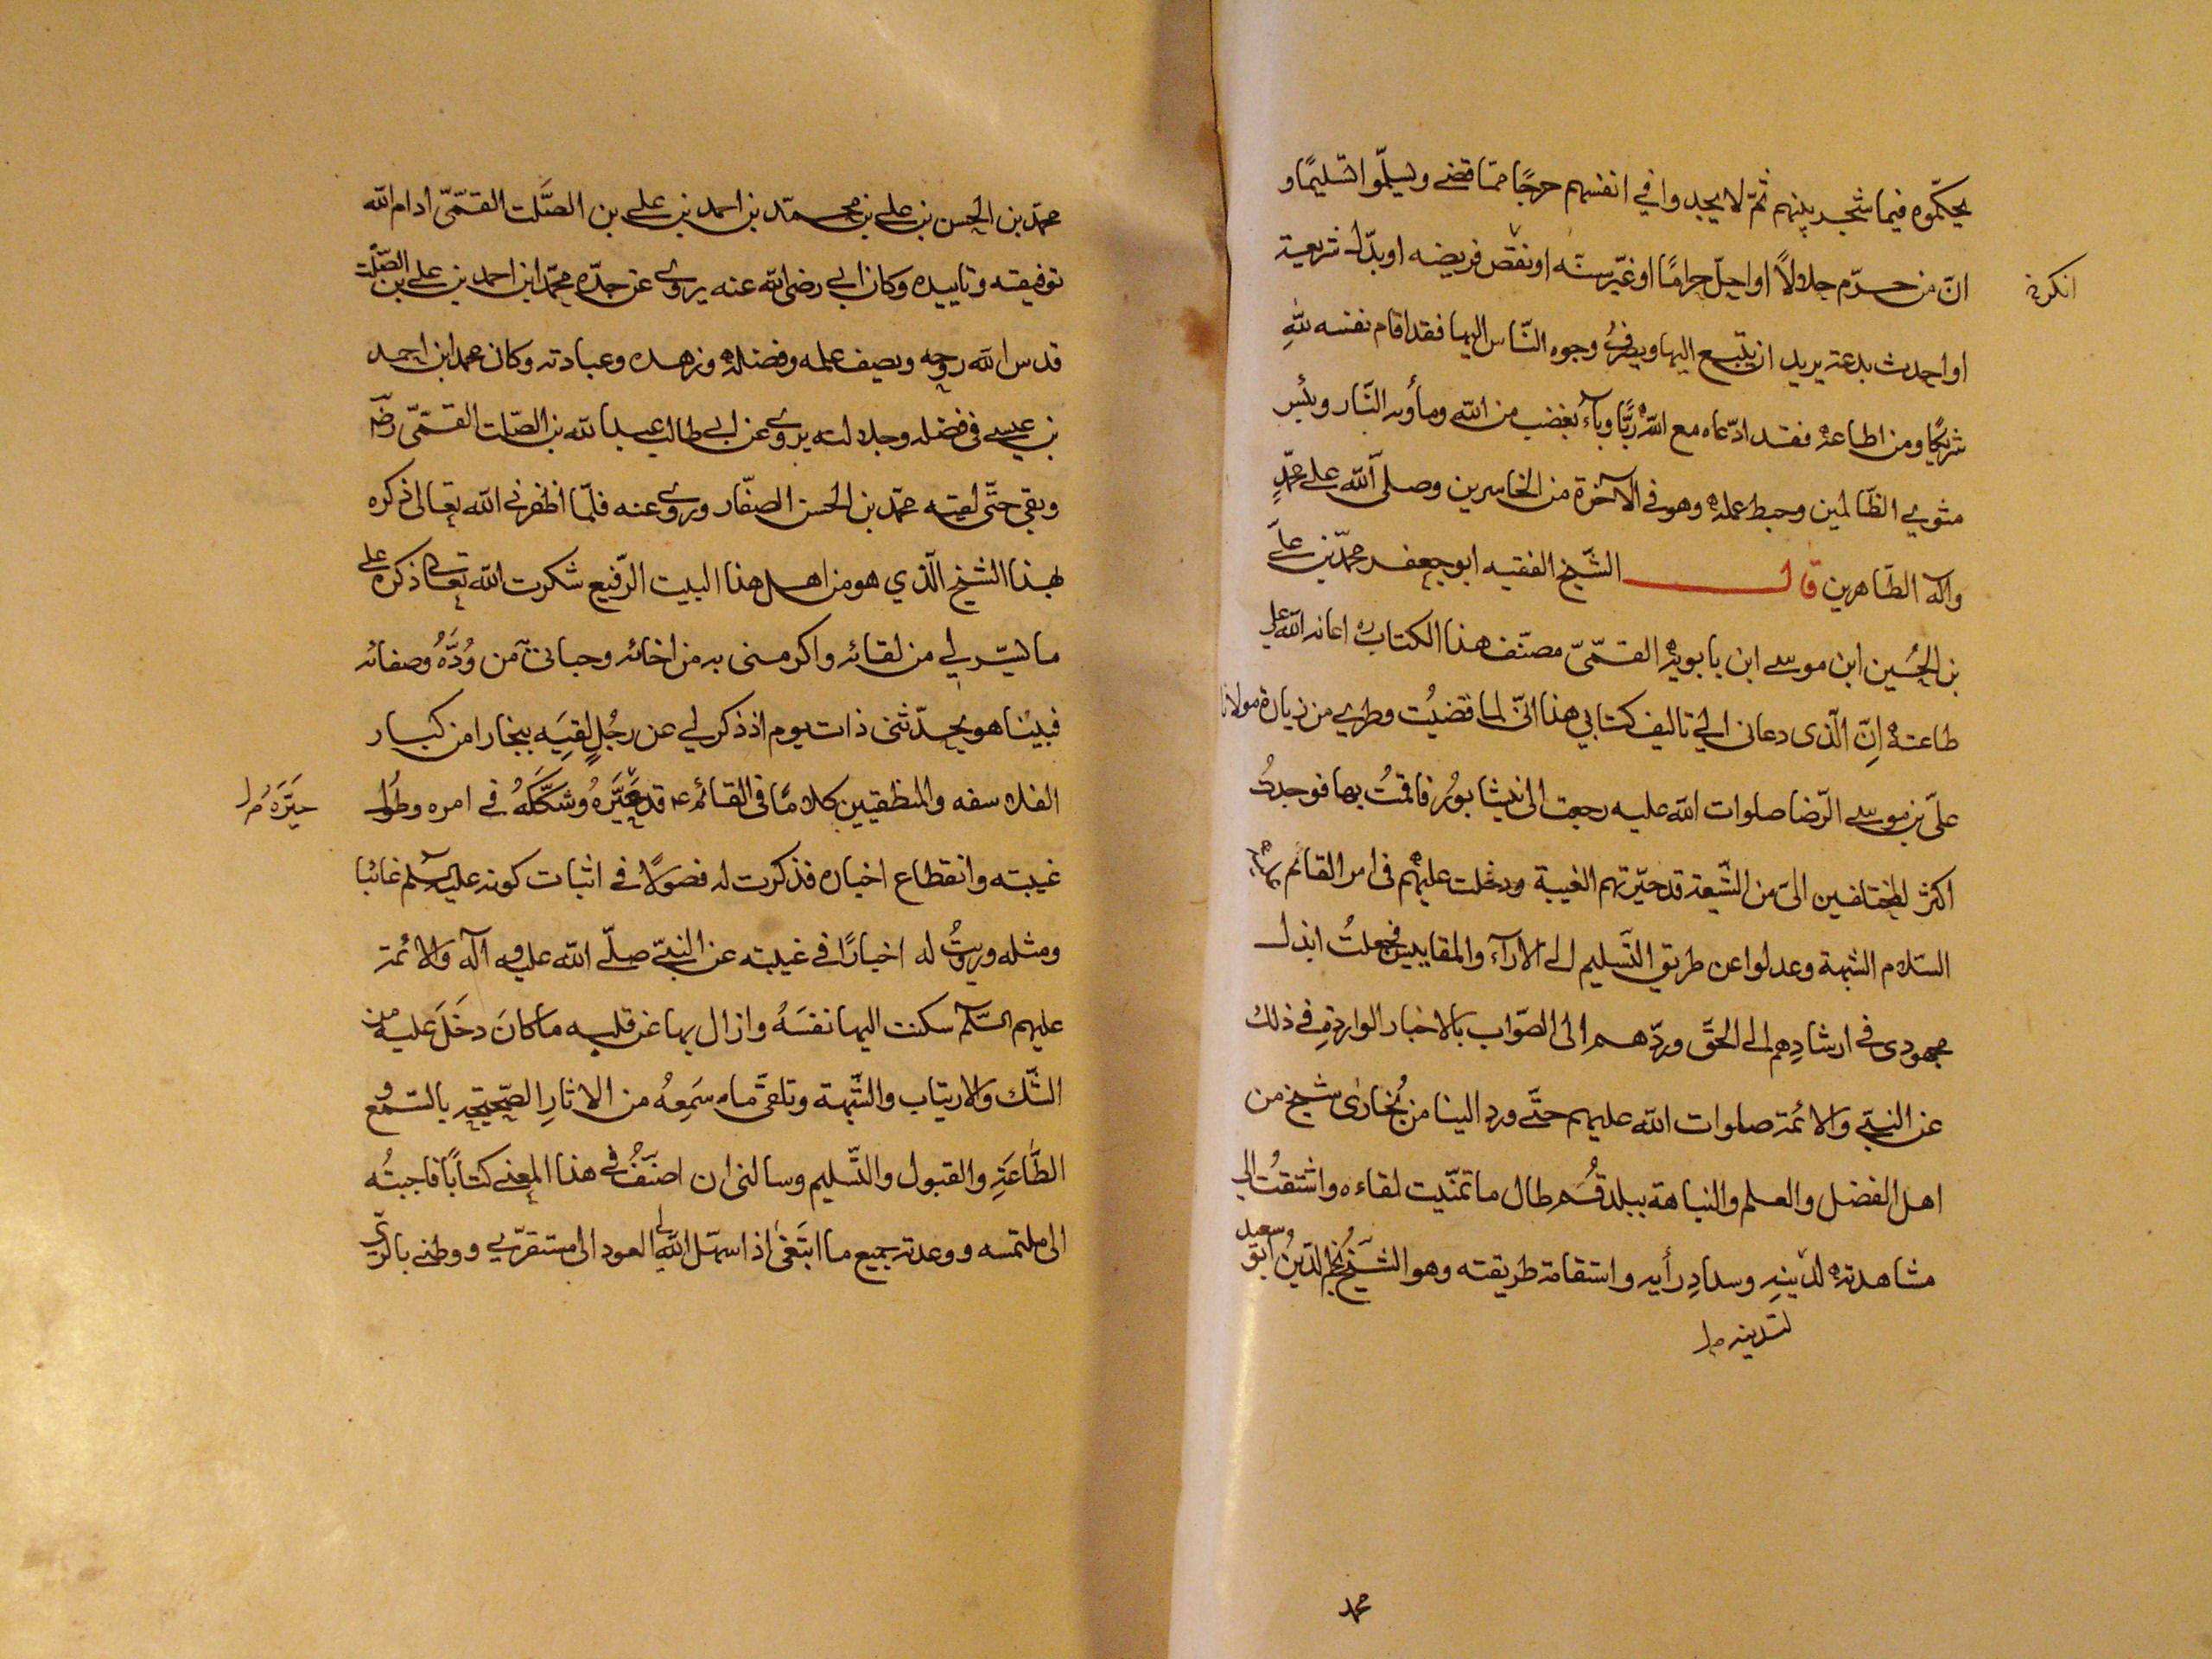 يحكّموه فيما شجر بينهم ثمّ لا يجدوا في انفسهم حرجًا ممّا قضى ويسلّموا تسليمًا و
انّ من حرّم حلالاً او احلّ حرامًا او غيّر سنّه او نقص فريضه او بدّل شريعة
او احدث بدعة يريد ان يتّبع اليها ويصرفُ وجوه النّاس اليها فقد اقام نفسه للهِ
شريكًا ومن اطاعه فقد ادّعاه مع الله ربًّا وبآء بغضب من الله ومأويه النّار وبئس
مثوى الظّالمين وحبط عمله وهو في الآخرة من الخاسرين وصلى الله على محمّدٍ
وآله الطّاهرين قال الشّيخ الفقيه ابو جعفر محمّد بن علّى
بن الحُسين ابن موسى ابن بابويه القمّىّ مصنّف هذا الكتاب ره اعانه الله على
طاعته اِنّ الّذى دعانى الى تاليف كتابي هذا انّى لما قضيْت وطرى من زيارة مولانا
علىّ بن موسى الرّضا صلوات الله عليه رجعت الى نيشابوُر فاقمتُ بها فوجدتُ
اكثر المختلفين الىّ من الشّيعة قد حيّرتهم الغيبة ودخلت عليهم فى امر القائم عليه
السّلام الشبهة وعدلوا عن طريق التّسليم الى الارآء والمقاييس فجعلتُ ابذل
مجهودى في ارشادِهم الى الحقّ وردّهم الى الصّواب بالاخبار الواردةِ في ذلك
عن النبىّ والائمّة صلوات الله عليهم حتّى ورد الينا من بُخارىٰ شيخ من
اهل الفضل والعلم والنباهة ببلد قُم طال ما تمنّيت لقاءه واشتقتُ الى
مشاهدته لدينِهِ وسدادِ رأيه واستقامة طريقته وهو الشّيخُ نجم الدّين ابو
وسعيد
لتدينه
محمد
محمّد بن الحسن بن على بن محمّد بن احمد بن على بن الصّلت القمّىّ ادام الله
توفيقه وتاييده وكان ابى رضى الله عنه يروى عن جدّه محمّد ابن احمد بن على بن الصّلت
قدس الله روحه ويصف علمه وفضله وزهده وعبادته وكان محمد ابن احمد
بن عيسى فى فضله وجلالته يروى عن ابى طالب عبد الله بن الصّلت القمّىّ رضه
وبقى حتّى لقيه محمّد بن الحسن الصفّار وروى عنه فلمّا اظفرنى الله تعالى ذكره
بهذا الشيخ الّذي هو من اهل هذا البيت الرّفيع شكرت الله تعالى ذكره على
ما يسّر لي من لقائه واكرمنى به من اخائه وحبانى من وُدّهُ وصفائه
فبيْنا هو يحدّثنى ذات يوم اذ ذكر لي عن رجُلٍ لقِيَه ببخارا من كبار
الفلاسفه والمنطقيين كلامًا فى القائم ع قد غيّرهُ وشكّكهُ في امره وطُول
حيّرَهُ
غيبته وانقطاع اخباره فذكرت له فصولًا في اثبات كونه عليه السّلم غائبا
ومثله ورويْتُ له اخبارًا في غيبته عن النبىّ صلّى الله عليه وآله والائمّة
عليهم السّلم سكنت اليها نفسَهُ وازال بها عن قلبه ما كانَ دخَلَ عليه من
الشّك والارتياب والشّبهة وتلقّى ما سَمِعهُ من الاثارِ الصّحيحة بالسّمع و
الطّاعَةِ والقبول والتّسليم وسالنى ان اصنّفُ في هذا المعنى كتابًا فاجبتُه
الى ملتمسه ووعدته جميع ما ابتَغىٰ اذا سهّل الله لى العود الى مستقرّى ووطنى بالرّى